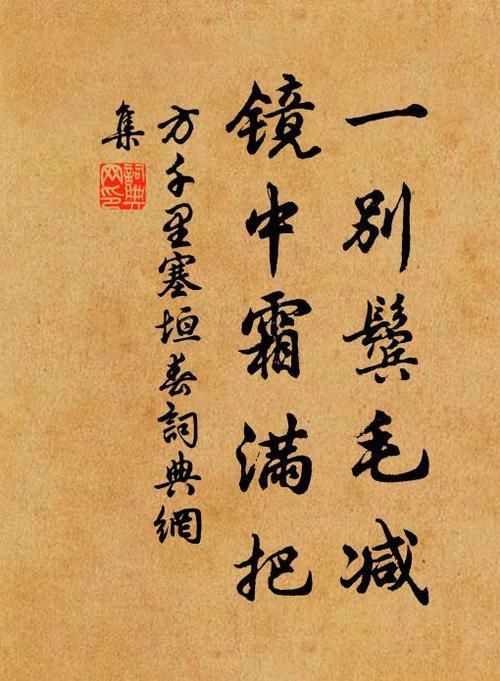 一别鬓毛减
镜中霜满把
方千里塞垣春词典網
集
詞典
网印